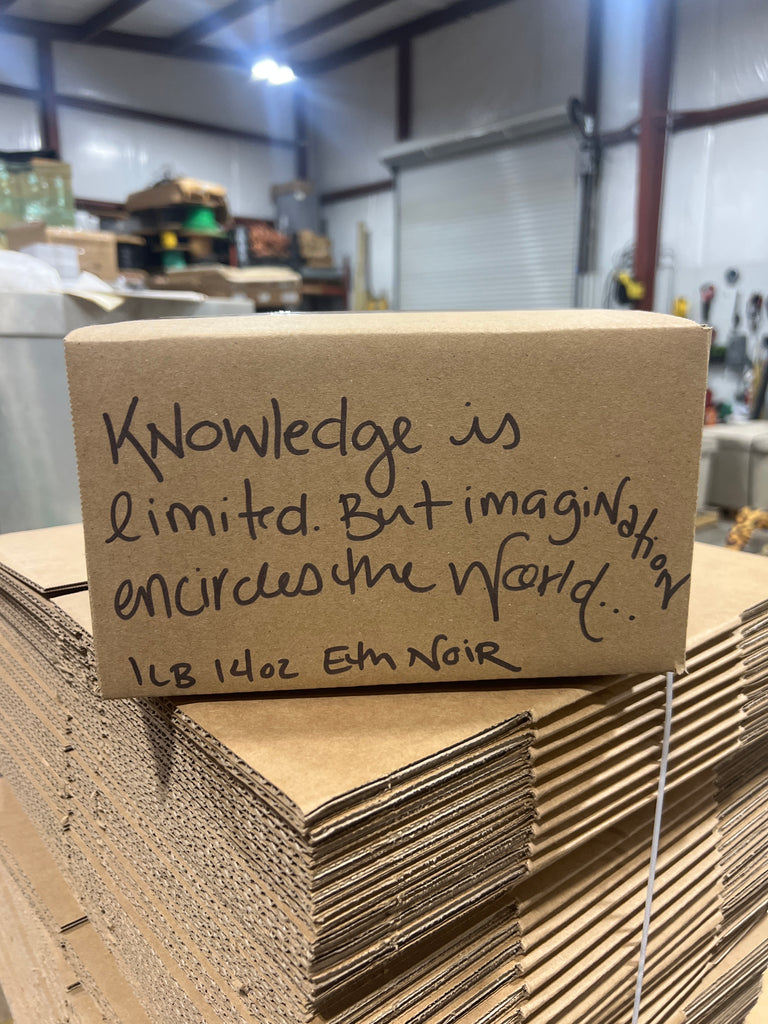 Knowledge is
limited. But imagination
encircles the World...
1LB 14oz Eth Noir